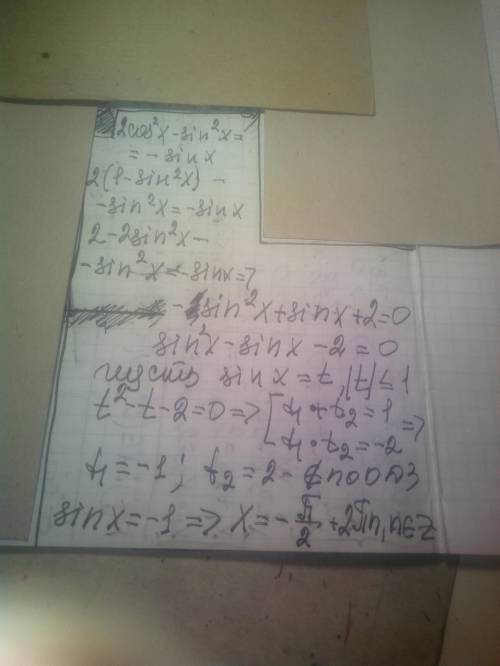 2cos²x - sin²x =
= - sin x
2(1 - sin²x) -
- sin²x = - sin x
2 - 2sin²x -
- sin²x = - sinx =>
- sin²x + sinx + 2 = 0
sin²x - sinx - 2 = 0
пусть sinx = t, |t| ≤ 1
t² - t - 2 = 0 => [ t₁ + t₂ = 1 =>
t₁ · t₂ = -2
t₁ = -1; t₂ = 2 - ∉ по ОДЗ
sinx = -1 => x = - π/2 + 2πn, n∈Z